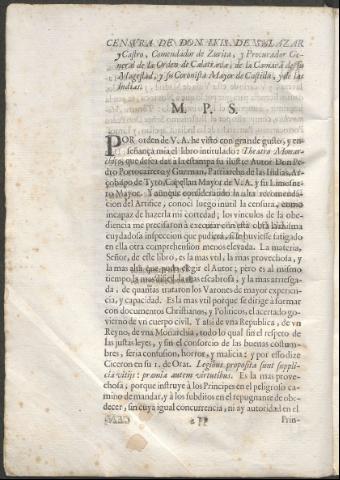 CENSURA DE DON LUIS DE SALAZAR
y Castro, Comendador de Zurita, y Procurador Ge-
neral de la Orden de Calatrava, de la Camara de su
Magestad, y su Coronista Mayor de Castilla, y de las
Indias.
M. P. S.
POR orden de V.A. he visto con grande gusto, y en-
señança mia el libro intitulado: Theatro Monar-
chico, que desea dàr à la estampa su ilustre Autor Don Pe-
dro Portocarrero y Guzman, Patriarcha de las Indias, Ar-
çobispo de Tyro, Capellan Mayor de V.A. y su Limosne-
ro Mayor. Y aunque considerando la alta recomenda-
cion del Artifice, conocì luego inutil la censura, como
incapaz de hazerla mi cortedad; los vinculos de la obe-
diencia me precisaron à executar con esta obra la misma
cuydadosa inspeccion que pudiera, si huviesse fatigado
en ella otra comprehension menos elevada. La materia,
Señor, de este libro, es la mas vtil, la mas provechosa, y
la mas alta que pudo elegir el Autor; pero es al mismo
tiempo la mas dificil, la mas escabrosa, y la mas arriesga-
da, de quantas trataron los Varones de mayor experien-
cia, y capacidad. Es la mas vtil porque se dirige à formar
con documentos Christianos, y Politicos, el acertado go-
vierno de vn cuerpo civil. Y assi de vna Republica, de vn
Reyno, de vna Monarchia, todo lo qual sin el respeto de
las justas leyes, y sin el consorcio de las buenas costum-
bres, seria confusion, horror, y malicia: y por esso dize
Ciceron en su 1. de Orat. Legibus proposita sunt suppli-
cia vitijs: præmia autem virtutibus. Es la mas prove-
chosa, porque instruye à los Principes en el peligroso ca-
mino de mandar, y à los subditos en el repugnante de obe-
decer, sin cuya igual concurrencia, ni ay autoridad en el
Prin-